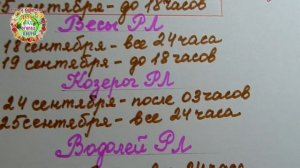 5 сентября - до 18 часов
Весы РЛ
18 сентября - все 24 часа
19 сентября - до 18 часов
Козерог РЛ
24 сентября - после 03 часов
25 сентября - все 24 часа
Водолей РЛ
все 24 часа